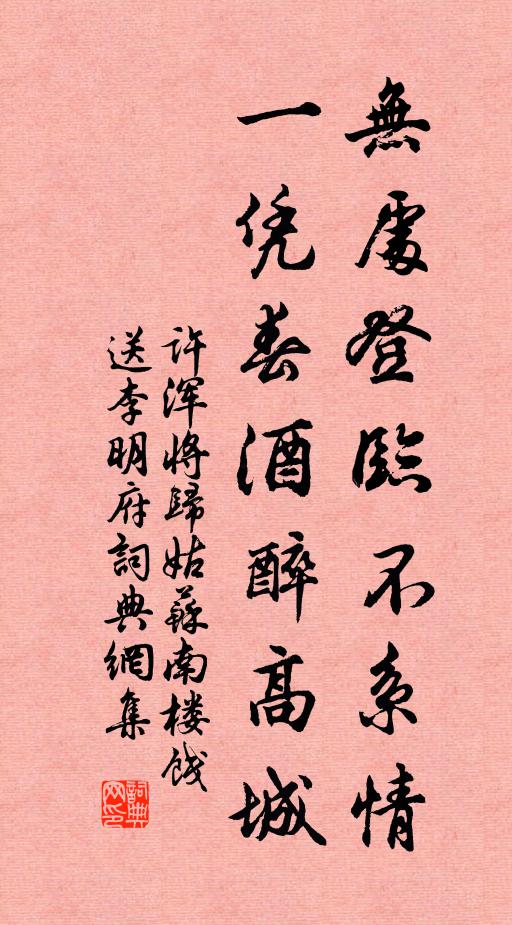 無處登臨不系情
一凭春酒醉高城
许渾將歸姑蘇南楼餞
送李明府詞典網集
詞典
网印